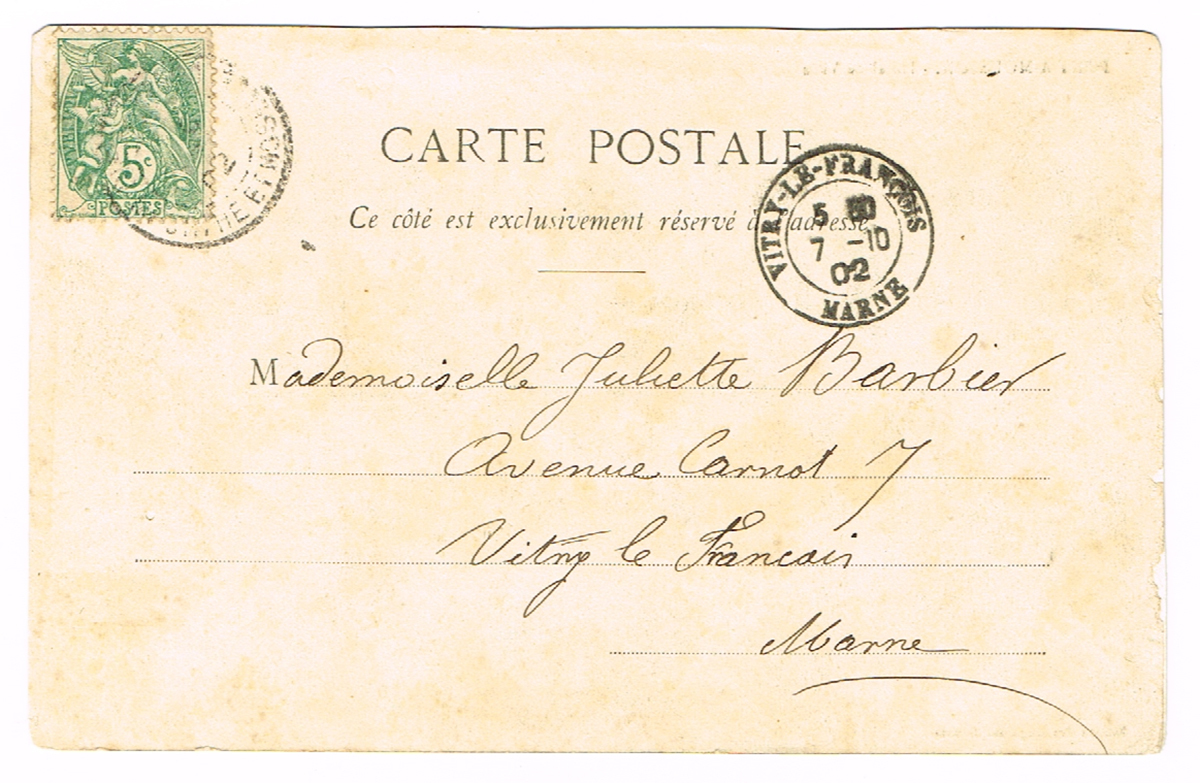 5c
POSTES
ET MOSELLE
CARTE POSTALE
Ce côté est exclusivement réservé à l'adresse
VITRY-LE-FRANÇOIS
5
7 -10
02
MARNE
Mademoiselle Juliette Barbier
Avenue Carnot 7
Vitry le Francois
Marne